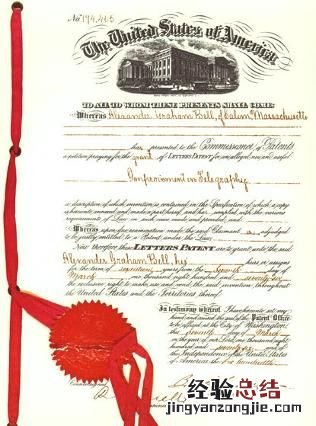 No. 174,465
The United States of America
TO ALL TO WHOM THESE PRESENTS SHALL COME:
Whereas Alexander Graham Bell, of Salem, Massachusetts
has presented to the Commissioner of Patents
a petition praying for the grant of LETTERS PATENT for an alleged new and useful
Improvement in Telegraphy
a description of which invention is contained in the Specification of which a copy
is hereunto annexed and made a part hereof, and has complied with the various
requirements of Law in such cases made and provided, and
Whereas upon due examination made the said Claimant is adjudged
to be justly entitled to a Patent under the Law.
Now therefore these LETTERS PATENT are to grant unto the said
Alexander Graham Bell, his heirs or assigns
for the term of seventeen years from the seventh day of
March one thousand eight hundred and seventy-six
the exclusive right to make, use and vend the said invention throughout
the United States and the Territories thereof.
In testimony whereof I have hereunto set my
hand and caused the seal of the Patent Office
to be affixed at the City of Washington
seventh day of March
in the year of our Lord one thousand eight
hundred and seventy-six and of
the Independence of the United States
of America the one hundredth.
经验总结
jingyanzongjie.com